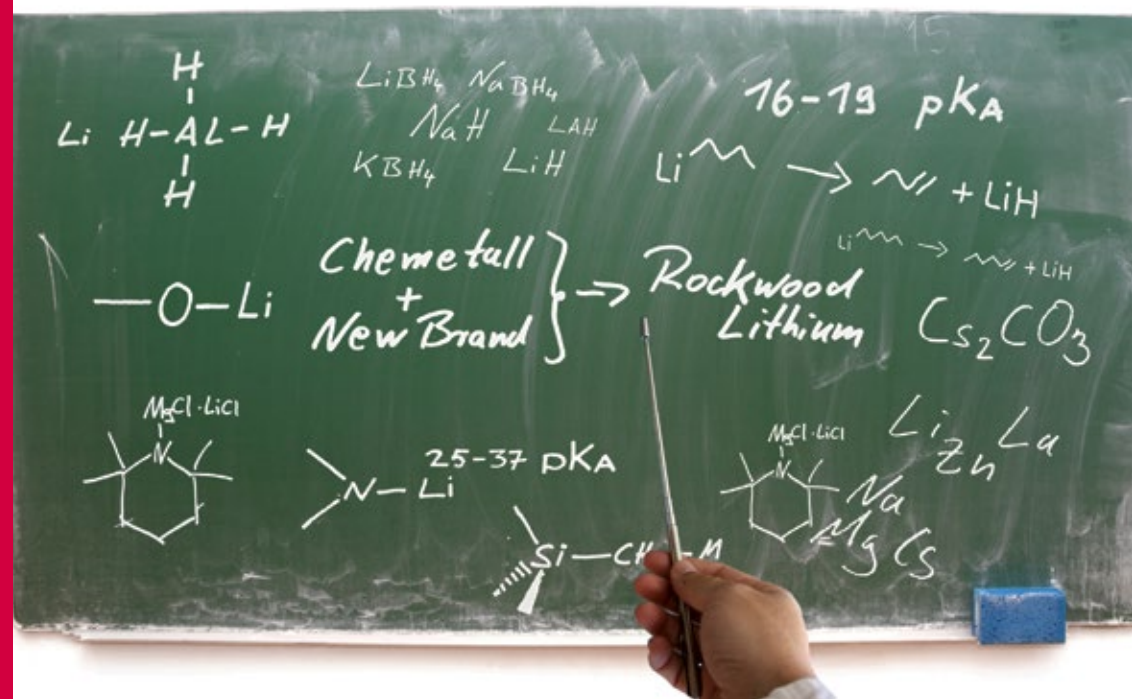 H
Li H-AL-H
H
LiBH₄ NaBH₄
NaH LAH
KBH₄ LiH
16-19 pKA
Li → + LiH
Li → + LiH
—O—Li
Chemetall
+
New Brand
} → Rockwood
Lithium
Cs₂CO₃
MgCl·LiCl
N
N—Li
25-37 pKA
Si—CH
M
MgCl·LiCl
N
Li Zn La
Na
Mg Cs